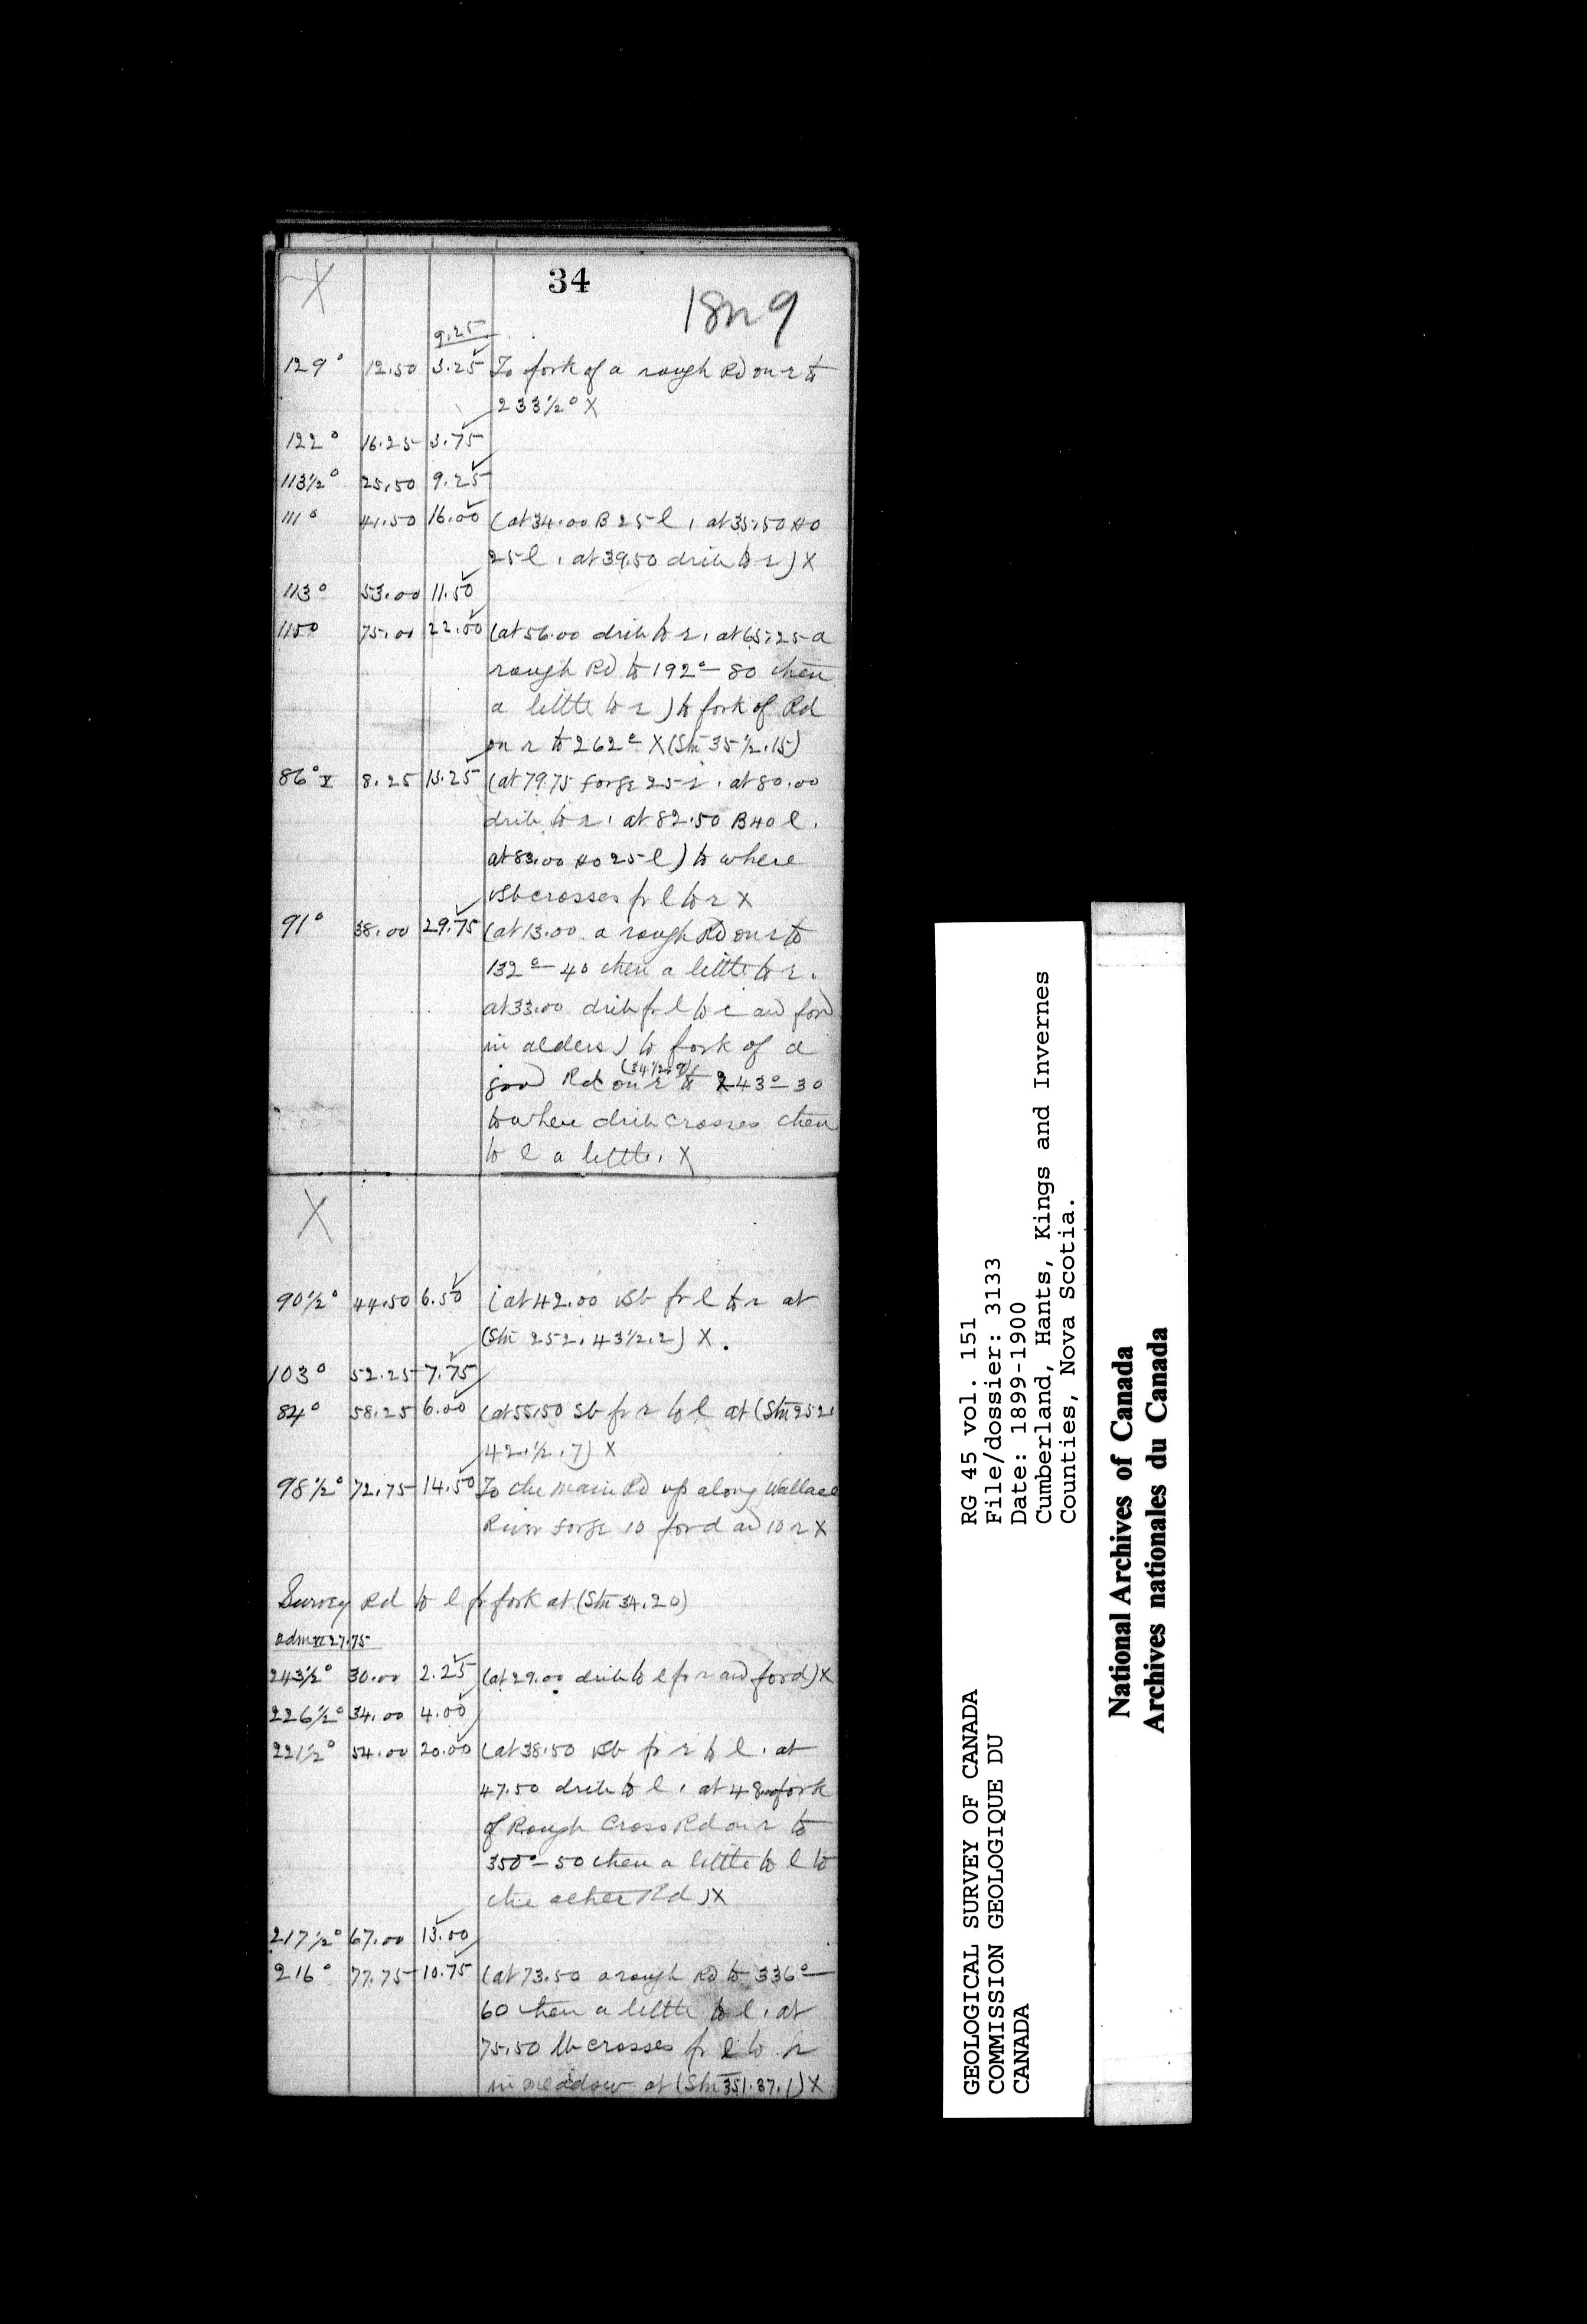 34
X
18n9
9.25
129° 12.50 3.25 To fork of a rough Rd on r to
233½° X
122° 16.25 3.75
113½° 25.50 9.25
111° 41.50 16.00 (at 34.00 B 25 l, at 35.50 Ho
25 l, at 39.50 drib to r) X
113° 53.00 11.50
115° 75.00 22.00 (at 56.00 drib to r, at 65.25 a
rough Rd to 192° – 80 then
a little to r) to fork of Rd
on r to 262° X (Stn 35½.15)
86° X 8.25 13.25 (at 79.75 forge 25 r, at 80.00
drib to r, at 82.50 B 40 l,
at 83.00 Ho 25 l) to where
vsb crosses fr l to r X
91° 38.00 29.75 (at 13.00 a rough Rd on r to
132° – 40 then a little to r,
at 33.00 drib fr l to r and for
in alders) to fork of a
(34½.9)
good Rd on r to 243° – 30
to where drib crosses then
to l a little. X
X
90½° 44.50 6.50 (at 42.00 vsb fr l to r at
(Stn 252.43½.2) X.
103° 52.25 7.75
84° 58.25 6.00 (at 55.50 sb fr r to l at (Stn 252.
42½.7) X
98½° 72.75 14.50 To the main Rd up along Wallace
River forge 10 ford and 10 r X
Survey Rd to l fr fork at (Stn 34.20)
27.75
243½° 30.00 2.25 (at 29.00 drib to l fr r and ford) X
226½° 34.00 4.00
221½° 54.00 20.00 (at 38.50 vsb fr r to l, at
47.50 drib to l, at 48.00 fork
of Rough Cross Rd on r to
350° – 50 then a little to l to
the other Rd) X
217½° 67.00 13.00
216° 77.75 10.75 (at 73.50 a rough Rd to 336° –
60 then a little to l, at
75.50 lb crosses fr l to r
in meadow at (Stn 351.37.1) X
RG 45 vol. 151
File/dossier: 3133
Date: 1899-1900
Cumberland, Hants, Kings and Invernes
Counties, Nova Scotia.
GEOLOGICAL SURVEY OF CANADA
COMMISSION GEOLOGIQUE DU
CANADA
National Archives of Canada
Archives nationales du Canada